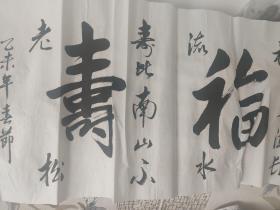 福
流水
寿比南山不
壽
老松
乙未年春節